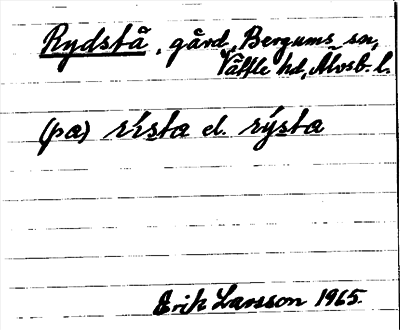 Rydstå, gård, Bergums sn,
Vättle hd, Älvsb. l.
(pa) rista el. rýsta
Erik Larsson 1965.